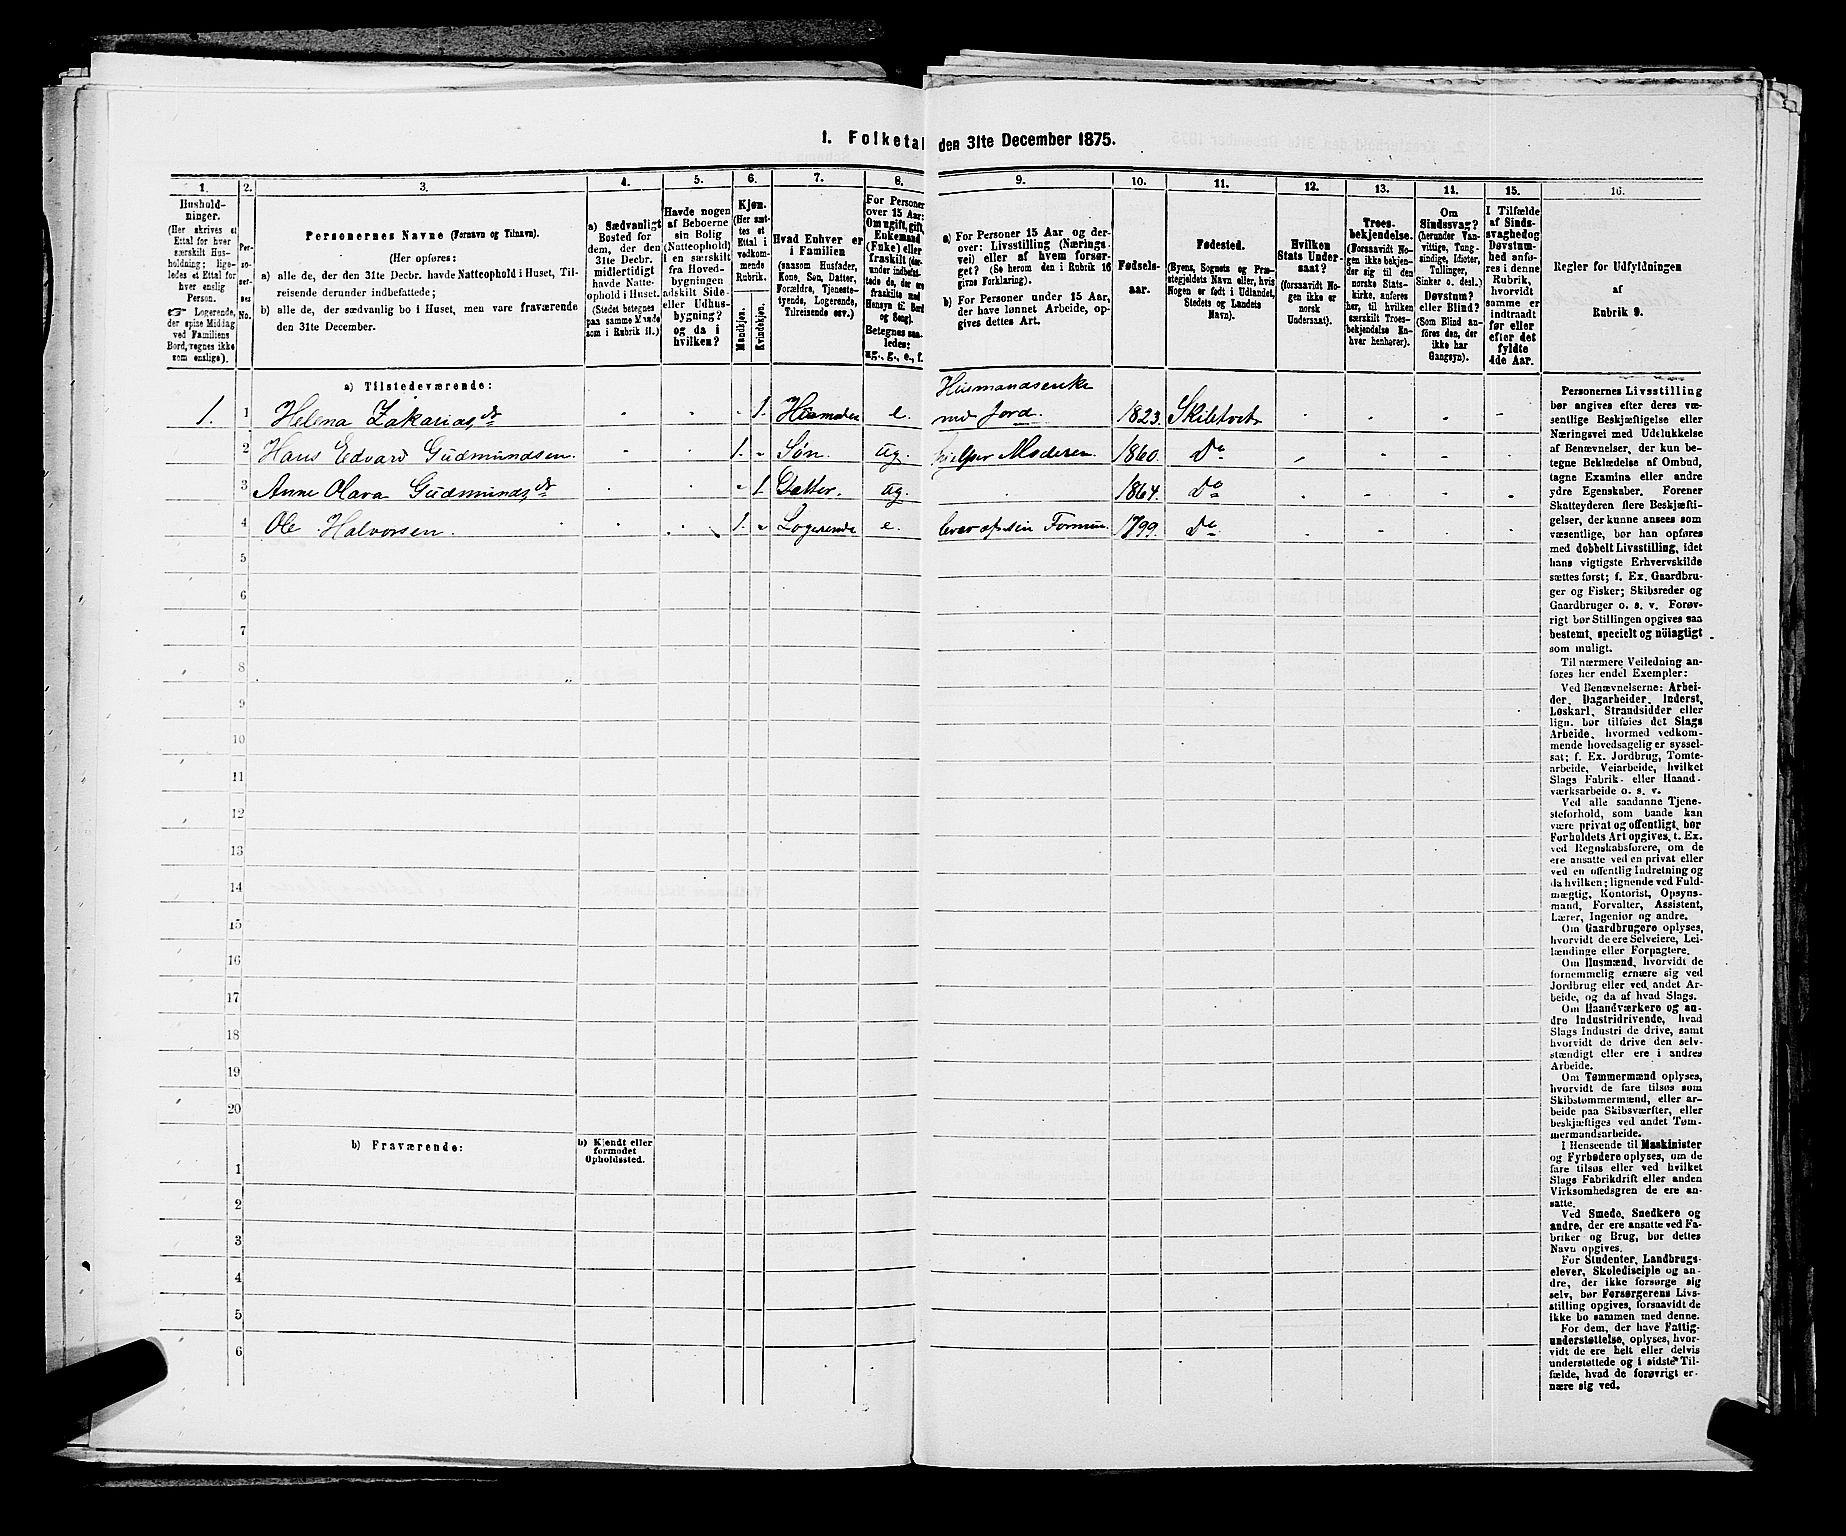 1. Folketal den 31te December 1875.
1.
2.
3.
4.
5.
6.
7.
8.
9.
10.
11.
12.
13.
14.
15.
16.
Hushold-
ninger.
(Her skrives et
Ettal for hver
særskilt Hus-
holdning; lige-
ledes et Ettal for
hver enslig
Person.
☞ Logerende,
der spise Middag
ved Familiens
Bord, regnes ikke
som enslige).
Per-
so-
ner-
nes
No.
Personernes Navne (Fornavn og Tilnavn).
(Her opføres:
a) alle de, der den 31te Decbr. havde Natteophold i Huset, Til-
reisende derunder indbefattede;
b) alle de, der sædvanlig bo i Huset, men vare fraværende
den 31te December.
a) Sædvanligt
Bosted for
dem, der den
31te Decbr.
midlertidigt
havde Natte-
ophold i Huset.
(Stedet betegnes
paa samme Maade
som i Rubrik 11.)
Havde nogen
af Beboerne
sin Bolig
(Natteophold)
i en særskilt
fra Hoved-
bygningen
adskilt Side-
eller Udhus-
bygning?
og da i
hvilken?
Kjøn.
(Her sæt-
tes et
Ettal i
vedkom-
mende
Rubrik.
Mandkjøn.
Kvindekjøn.
Hvad Enhver er
i Familien
(saasom Husfader,
Kone, Søn, Datter,
Forældre, Tjeneste-
tyende, Logerende,
Tilreisende osv.)
For Personer
over 15 Aar:
Om ugift, gift,
Enkemand
(Enke) eller
fraskilt (der-
under indbefat-
tede de, der ere
fraskilte med
Hensyn til Bord
og Seng).
Betegnes saa-
ledes:
ug., g., e., f.
a) For Personer 15 Aar og der-
over: Livsstilling (Nærings-
vei) eller af hvem forsør-
get? (Se herom den i Rubrik 16
givne Forklaring).
b) For Personer under 15 Aar,
der have lønnet Arbeide, op-
gives dettes Art.
Fødsels-
aar.
Fødested.
(Byens, Sognets og Præ-
stegjeldets Navn eller, hvis
Nogen er født i Udlandet,
Stedets og Landets
Navn).
Hvilken
Stats Under-
saat?
(forsaavidt No-
gen ikke er
norsk
Undersaat).
Troes-
bekjendelse.
(Forsaavidt No-
gen ikke bekjen-
der sig til den
norske Stats-
kirke, anføres
her, til hvilken
særskilt Troes-
bekjendelse En-
hver henhører).
Om
Sindssvag?
(herunder Van-
vittige, Tung-
sindige, Idioter,
Tullinger,
Sinker o. desl.)
Døvstum?
eller Blind?
(Som Blind an-
føres den, der
ikke har
Gangsyn).
I Tilfælde
af Sinds-
svaghed og
Døvstum-
hed anfø-
res i denne
Rubrik,
hvorvidt
samme er
indtraadt
før eller
efter det
fyldte
4de Aar.
Regler for Udfyldningen
af
Rubrik 9.
a) Tilstedeværende:
1. 1 Helena Zakariasdr - - - 1. Husmoder e. Husmandsenke
med Jord. 1823. Skibtvet - - - -
2 Hans Edvard Gudmundsen. - - 1. - Søn. ug. hjelper Moderen. 1860. Do - - - -
3 Anne Olava Gudmundsdr - - - 1. Datter. ug. 1864. Do - - - -
4 Ole Halvorsen. - - 1. - Logerende e. lever af sin Formue. 1799. Do - - - -
5
6
7
8
9
10
11
12
13
14
15
16
17
18
19
20
b) Fraværende:
b) Kjendt eller
formodet
Opholdssted.
1
2
3
4
5
6
Personernes Livsstilling
bør angives efter deres væ-
sentlige Beskjæftigelse eller
Næringsvei med Udelukkelse
af Benævnelser, der kun be-
tegne Beklædelse af Ombud,
tagne Examina eller andre
ydre Egenskaber. Forener
Skatteyderen flere Beskjæfti-
gelser, der kunne ansees som
væsentlige, bør han opføres
med dobbelt Livsstilling, idet
hans vigtigste Erhvervskilde
sættes først; f. Ex. Gaardbru-
ger og Fisker; Skibsreder og
Gaardbruger o. s. v. Forøv-
rigt bør Stillingen opgives saa
bestemt, specielt og nöiagtigt
som muligt.
Til nærmere Veiledning an-
føres her endel Exempler:
Ved Benævnelserne: Arbei-
der, Dagarbeider, Inderst,
Løskarl, Strandsidder eller
lign. bør tilføies det Slags
Arbeide, hvormed vedkom-
mende hovedsagelig er syssel-
sat; f. Ex. Jordbrug, Tomte-
arbeide, Veiarbeide, hvilket
Slags Fabrik- eller Haand-
værksarbeide o. s. v.
Ved alle saadanne Tjene-
steforhold, som baade kan
være privat og offentligt, bør
Forholdets Art opgives, t. Ex.
ved Regnskabsførere, om de
ere ansatte ved en privat eller
ved en offentlig Indretning og
da hvilken; lignende ved Fuld-
mægtig, Kontorist, Opsyns-
mand, Forvalter, Assistent,
Lærer, Ingeniør og andre.
Om Gaardbrugere oplyses,
hvorvidt de ere Selveiere, Lei-
lændinge eller Forpagtere.
Om Husmænd, hvorvidt de
fornemmelig ernære sig ved
Jordbrug eller ved andet Ar-
beide, og da af hvad Slags.
Om Haandværkere og an-
dre Industridrivende, hvad
Slags Industri de drive, samt
hvorvidt de drive den selv-
stændigt eller ere i andres
Arbeide.
Om Tømmermænd oplyses,
hvorvidt de fare tilsøs som
Skibstømmermænd, eller ar-
beide paa Skibsværfter, eller
beskjæftiges ved andet Tøm-
mermandsarbeide.
I Henseende til Maskinister
og Fyrbødere oplyses, om de
fare tilsøs eller ved hvilket
Slags Fabrikdrift eller anden
Virksomhedsgren de ere an-
satte.
Ved Smede, Snedkere og
andre, der ere ansatte ved Fa-
briker og Brug, bør dettes
Navn opgives.
For Studenter, Landbrugs-
elever, Skoledisciple og an-
dre, der ikke forsørge sig
selv, bør Forsørgerens Livs-
stilling opgives, forsaavidt de
ikke bo sammen med denne.
For dem, der have Fattig-
understøttelse, oplyses, hvor-
vidt de ere helt eller delvis
understøttede og i sidste Til-
fælde, hvad de forøvrigt er-
nære sig ved.